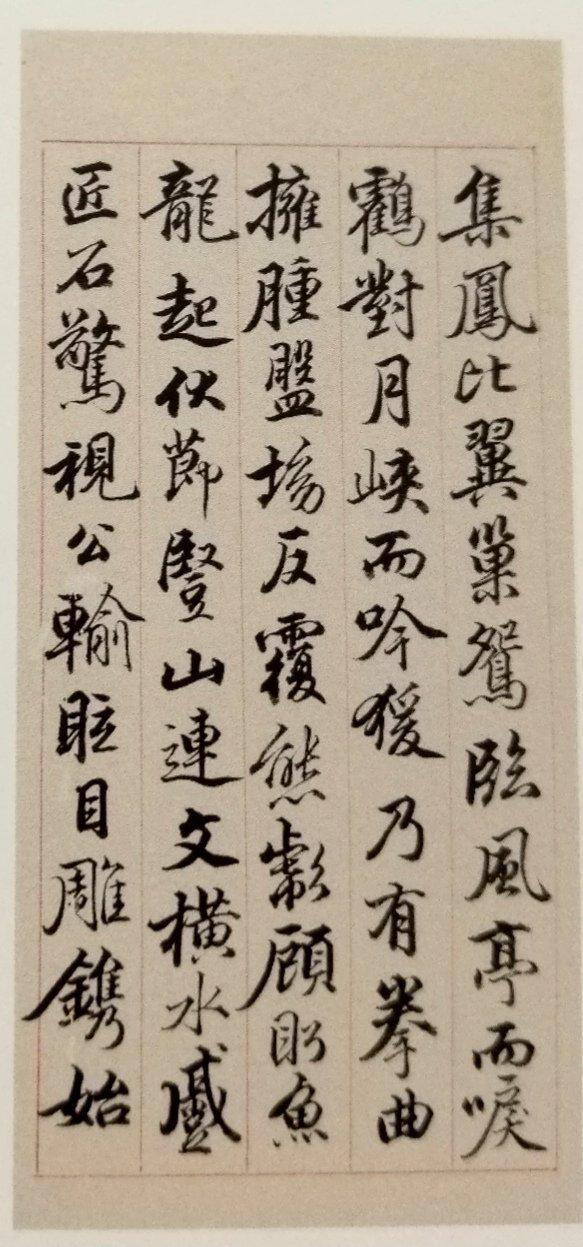 集鳳比翼巢鴛臨風亭而唳
鶴對月峽而吟猨乃有拳曲
擁腫盤坳反覆熊彪顧盼魚
龍起伏節豎山連文橫水蹙
匠石驚視公輸眩目雕鐫始